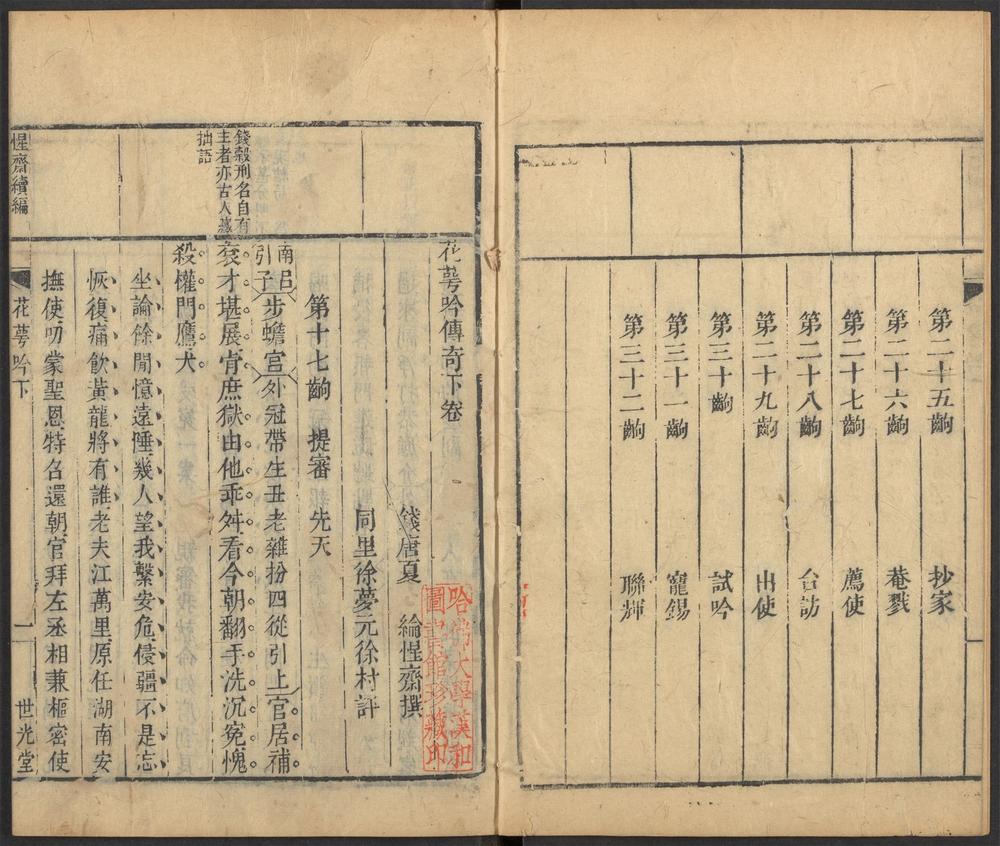 第二十五齣 抄家
第二十六齣 菴戮
第二十七齣 薦使
第二十八齣 台訪
第二十九齣 出使
第三十齣 試吟
第三十一齣 寵錫
第三十二齣 聯輝
花萼吟傳奇下卷
錢唐夏 綸惺齋撰
同里徐夢元徐村評
哈佛大學漢和
圖書館珍藏印
第十七齣 提審 先天
南呂
引子
步蟾宮 外冠帶生丑老雜扮四從引上 官居補
袞才堪展肯庶獄由他乖舛看今朝翻手洗沉冤愧
殺權門鷹犬
錢穀刑名自有
主者亦古人藏
拙語
坐論餘閒憶遠陲幾人望我繫安危侵疆不是忘
恢復痛飲黃龍將有誰老夫江萬里原任湖南安
撫使叨蒙聖恩特召還朝官拜左丞相兼樞密使
惺齋續編
花萼吟下
一
世光堂